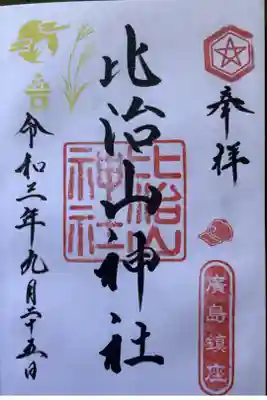 奉拝
廣島鎮座
比治山神社
比治山
神社
令和三年九月二十五日